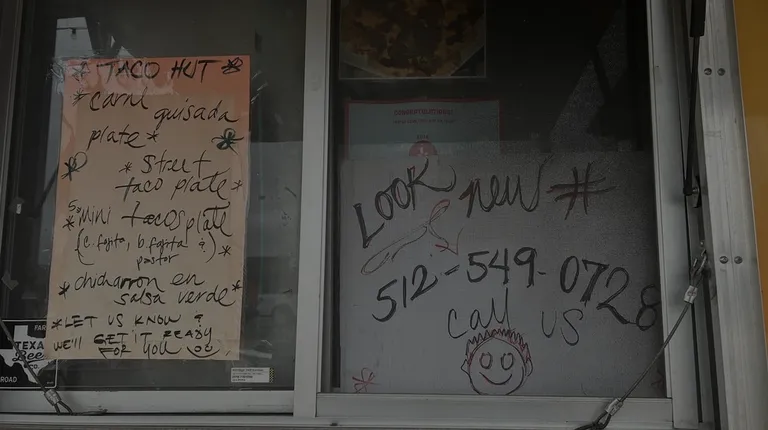 * TACO HUT *
* Carni guisada
plate *
* Street
taco plate *
5 * Mini tacos plate
(c. fajita, b. fajita &
pastor) *
* chicharron en
salsa verde *
* LET US KNOW &
WE'LL GET IT READY
FOR YOU
LOOK new #
512-549-0728
call us
TEXA
Bee
ROAD